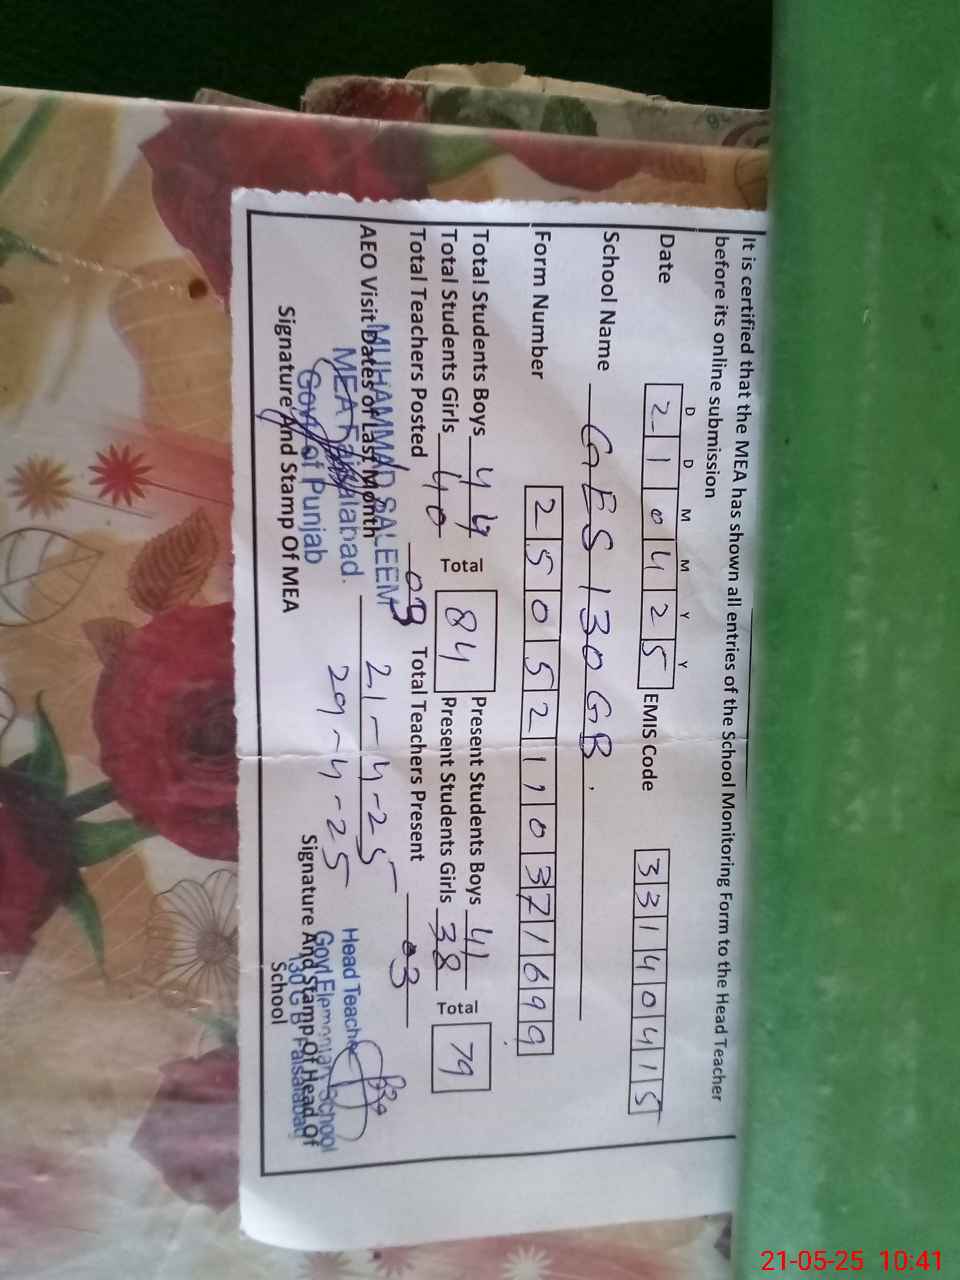 It is certified that the MEA has shown all entries of the School Monitoring Form to the Head Teacher
before its online submission
D D M M Y Y
Date 2 1 0 4 2 5 EMIS Code 3 3 1 4 0 4 1 5
School Name GES 130 GB.
Form Number 2 5 0 5 2 1 1 0 3 7 1 6 9 9
Total Students Boys 44 Total 84 Present Students Boys 41 Total 79
Total Students Girls 40 Present Students Girls 38
Total Teachers Posted 03 Total Teachers Present 03
AEO Visit Dates of Last Month 21-4-25
29-4-25
MUHAMMAD SALEEM
MEA Faisalabad.
Govt of Punjab
Signature And Stamp Of MEA
Head Teacher
Govt Elementary School
130 G B Faisalabad
Signature And Stamp Of Head Of
School
21-05-25 10:41